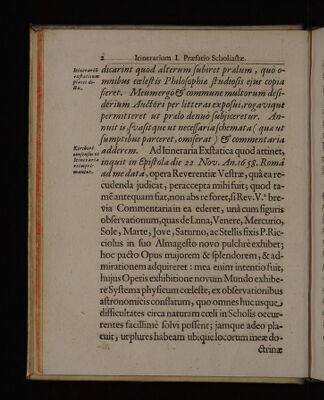 2 Itinerarium I. Præfatio Scholiastæ.
Itinerariũ exstaticum
dicarint quod alterum subiret prælum, quò o-
mnibus cœlestis Philosophiæ studiosis ejus copia
fieret. Meum ergo & commune multorum desi-
derium Auctori per litteras exposui, rogavique
permitteret ut prælo denuò subjiceretur. An-
nuit is, suasitque ut necessaria schemata (quæ ut
sumptibus parceret, omiserat) & commentaria
adderem. Ad Itineraria Exstatica quod attinet,
Kircheri
Itineraria
inquit in Epistola die 22 Nov. An. 1658. Româ
ad me datâ, opera Reverentiæ Vestræ, quâ ea re-
cudenda judicat, peraccepta mihi fuit; quod ta-
mẽ antequam fiat, non abs re foret, si Rev. V.ª bre-
via Commentaria in ea ederet, unà cum figuris
observationum, quas de Luna, Venere, Mercurio,
Sole, Marte, Jove, Saturno, ac Stellis fixis P. Ric-
ciolus in suo Almagesto novo pulchrè exhibet;
hoc pacto Opus majorem & splendorem, & ad-
mirationem adquireret: mea enim intentio fuit,
hujus Operis exhibitione novum Mundo exhibe-
re Systema physicum cœleste, ex observationibus
astronomicis constatum, quo omnes huc usque
difficultates circa naturam cœli in Scholis occur-
rentes facillimè solvi possent; jamque adeò pla-
cuit, ut plures habeam ubique locorum meæ do-
ctrinæ